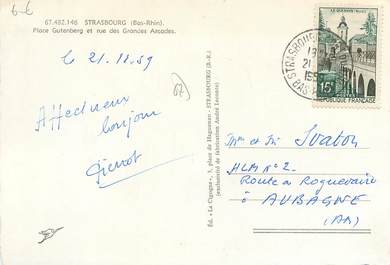 6-6
67.482.146 - STRASBOURG (Bas-Rhin).
Place Gutenberg et rue des Grandes Arcades.
le 21.11.59
67
Affectueux
bonjour
Pierrot
Ed. « La Cigogne », 3, place de Haguenau - STRASBOURG (B.-R.)
(exclusivité de fabrication André Leconte)
LE QUESNOY (Nord)
15F
REPUBLIQUE FRANÇAISE
STRASBOURG
21
BAS-
Mme et Mr Ivaton
HLM n° 2
Route de Roquevaire
à AUBAGNE